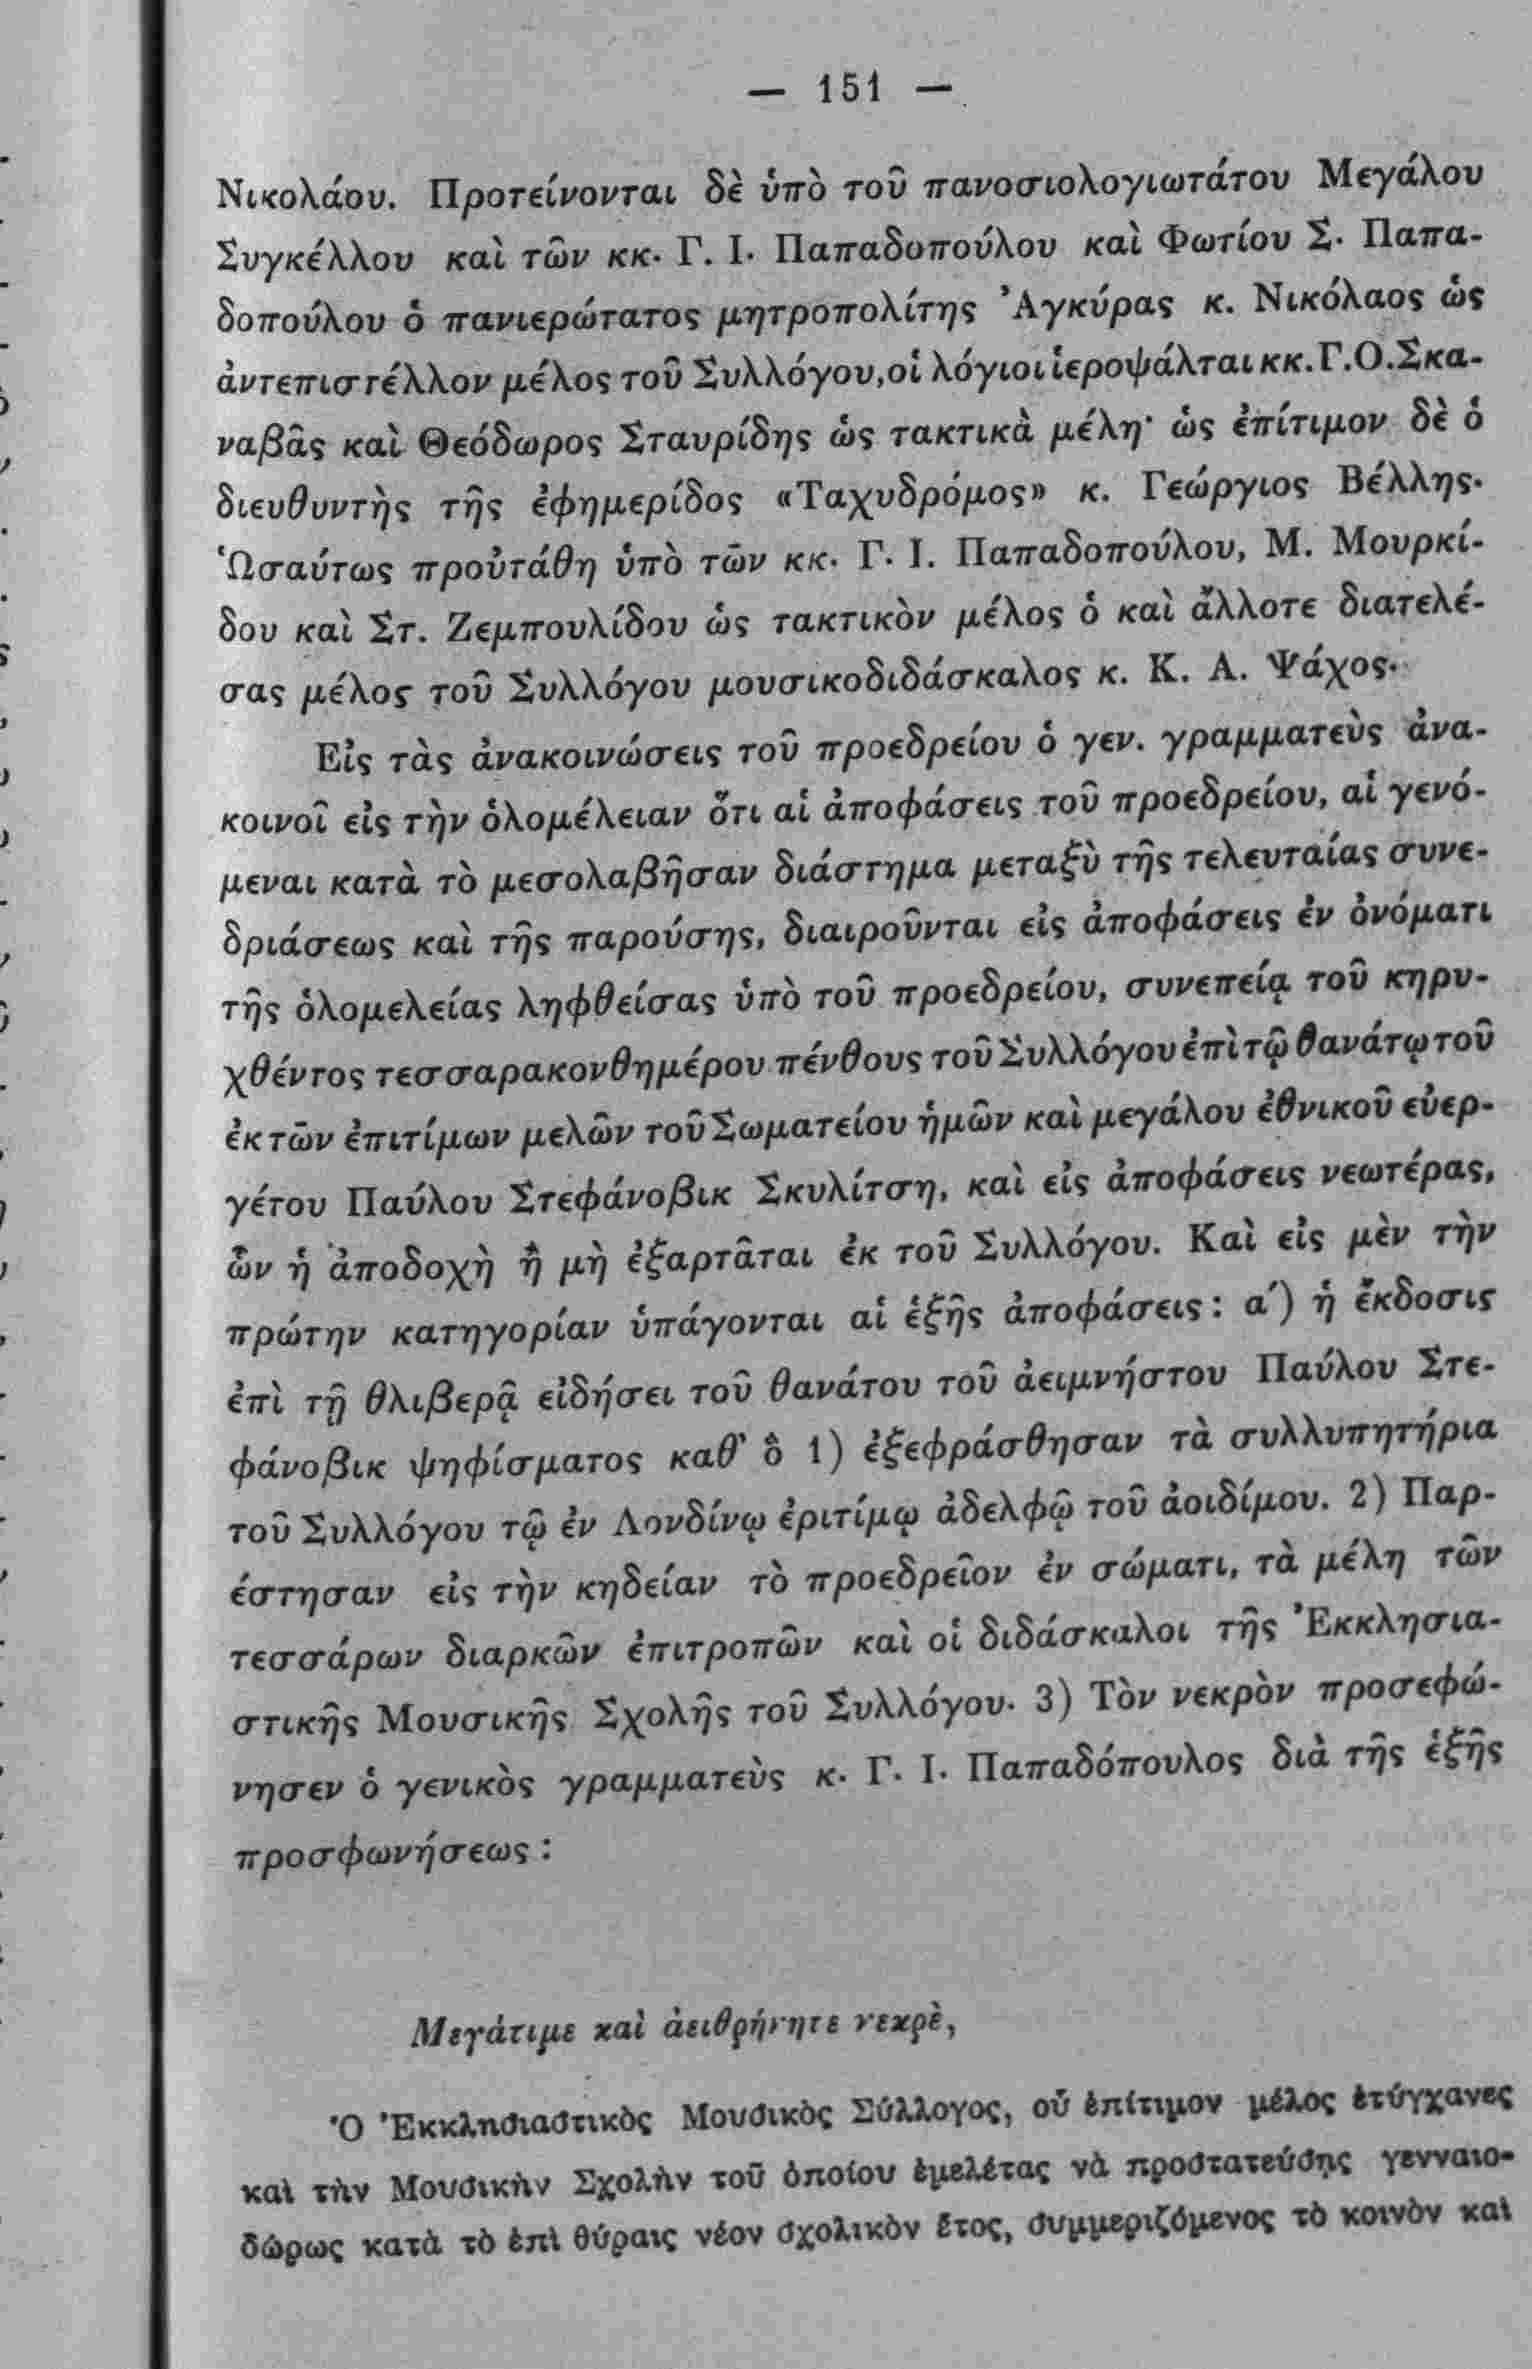 — 151 —
Νικολάου. Προτείνονται δὲ ὑπὸ τοῦ πανοσιολογιωτάτου Μεγάλου
Συγκέλλου καὶ τῶν κκ. Γ. Ι. Παπαδοπούλου καὶ Φωτίου Σ. Παπα-
δοπούλου ὁ πανιερώτατος μητροπολίτης Ἀγκύρας κ. Νικόλαος ὡς
ἀντεπιστέλλον μέλος τοῦ Συλλόγου, οἱ λόγιοι ἱεροψάλται κκ. Γ. Ο. Σκα-
ναβᾶς καὶ Θεόδωρος Σταυρίδης ὡς τακτικὰ μέλη· ὡς ἐπίτιμον δὲ ὁ
διευθυντὴς τῆς ἐφημερίδος «Ταχυδρόμος» κ. Γεώργιος Βέλλης.
Ὡσαύτως προὐτάθη ὑπὸ τῶν κκ. Γ. Ι. Παπαδοπούλου, Μ. Μουρκί-
δου καὶ Στ. Ζεμπουλίδου ὡς τακτικὸν μέλος ὁ καὶ ἄλλοτε διατελέ-
σας μέλος τοῦ Συλλόγου μουσικοδιδάσκαλος κ. Κ. Α. Ψάχος.
Εἰς τὰς ἀνακοινώσεις τοῦ προεδρείου ὁ γεν. γραμματεὺς ἀνα-
κοινοῖ εἰς τὴν ὁλομέλειαν ὅτι αἱ ἀποφάσεις τοῦ προεδρείου, αἱ γενό-
μεναι κατὰ τὸ μεσολαβῆσαν διάστημα μεταξὺ τῆς τελευταίας συνε-
δριάσεως καὶ τῆς παρούσης, διαιροῦνται εἰς ἀποφάσεις ἐν ὀνόματι
τῆς ὁλομελείας ληφθείσας ὑπὸ τοῦ προεδρείου, συνεπείᾳ τοῦ κηρυ-
χθέντος τεσσαρακονθημέρου πένθους τοῦ Συλλόγου ἐπὶ τῷ θανάτῳ τοῦ
ἐκ τῶν ἐπιτίμων μελῶν τοῦ Σωματείου ἡμῶν καὶ μεγάλου ἐθνικοῦ εὐερ-
γέτου Παύλου Στεφάνοβικ Σκυλίτση, καὶ εἰς ἀποφάσεις νεωτέρας,
ὧν ἡ ἀποδοχὴ ἢ μὴ ἐξαρτᾶται ἐκ τοῦ Συλλόγου. Καὶ εἰς μὲν τὴν
πρώτην κατηγορίαν ὑπάγονται αἱ ἑξῆς ἀποφάσεις: α΄) ἡ ἔκδοσις
ἐπὶ τῇ θλιβερᾷ εἰδήσει τοῦ θανάτου τοῦ ἀειμνήστου Παύλου Στε-
φάνοβικ ψηφίσματος καθ' ὃ 1) ἐξεφράσθησαν τὰ συλλυπητήρια
τοῦ Συλλόγου τῷ ἐν Λονδίνῳ ἐριτίμῳ ἀδελφῷ τοῦ ἀοιδίμου. 2) Παρ-
έστησαν εἰς τὴν κηδείαν τὸ προεδρεῖον ἐν σώματι, τὰ μέλη τῶν
τεσσάρων διαρκῶν ἐπιτροπῶν καὶ οἱ διδάσκαλοι τῆς Ἐκκλησια-
στικῆς Μουσικῆς Σχολῆς τοῦ Συλλόγου. 3) Τὸν νεκρὸν προσεφώ-
νησεν ὁ γενικὸς γραμματεὺς κ. Γ. Ι. Παπαδόπουλος διὰ τῆς ἑξῆς
προσφωνήσεως:
Μεγάτιμε καὶ ἀειθρήνητε νεκρὲ,
Ὁ Ἐκκλησιαστικὸς Μουσικὸς Σύλλογος, οὗ ἐπίτιμον μέλος ἐτύγχανες
καὶ τὴν Μουσικὴν Σχολὴν τοῦ ὁποίου ἐμελέτας νὰ προστατεύσῃς γενναιο-
δώρως κατὰ τὸ ἐπὶ θύραις νέον σχολικὸν ἔτος, συμμεριζόμενος τὸ κοινὸν καὶ